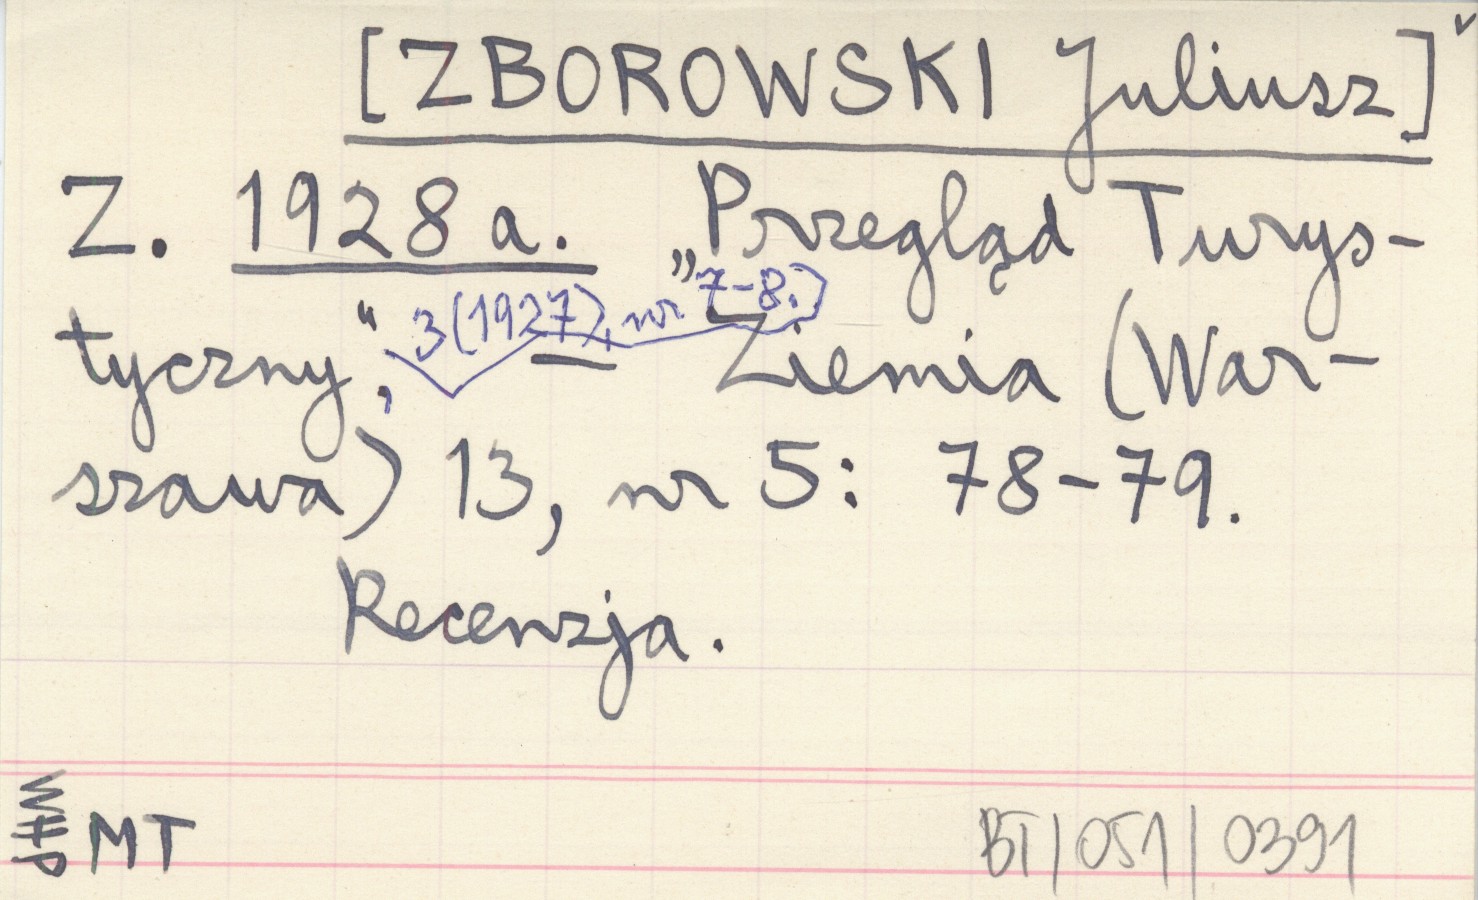 [ZBOROWSKI Juliusz]
Z. 1928 a. „Przegląd Turys-
tyczny“, 3(1927), nr 7-8. – Ziemia (War-
szawa) 13, nr 5: 78-79.
Recenzja.
MT
BT/051/0391